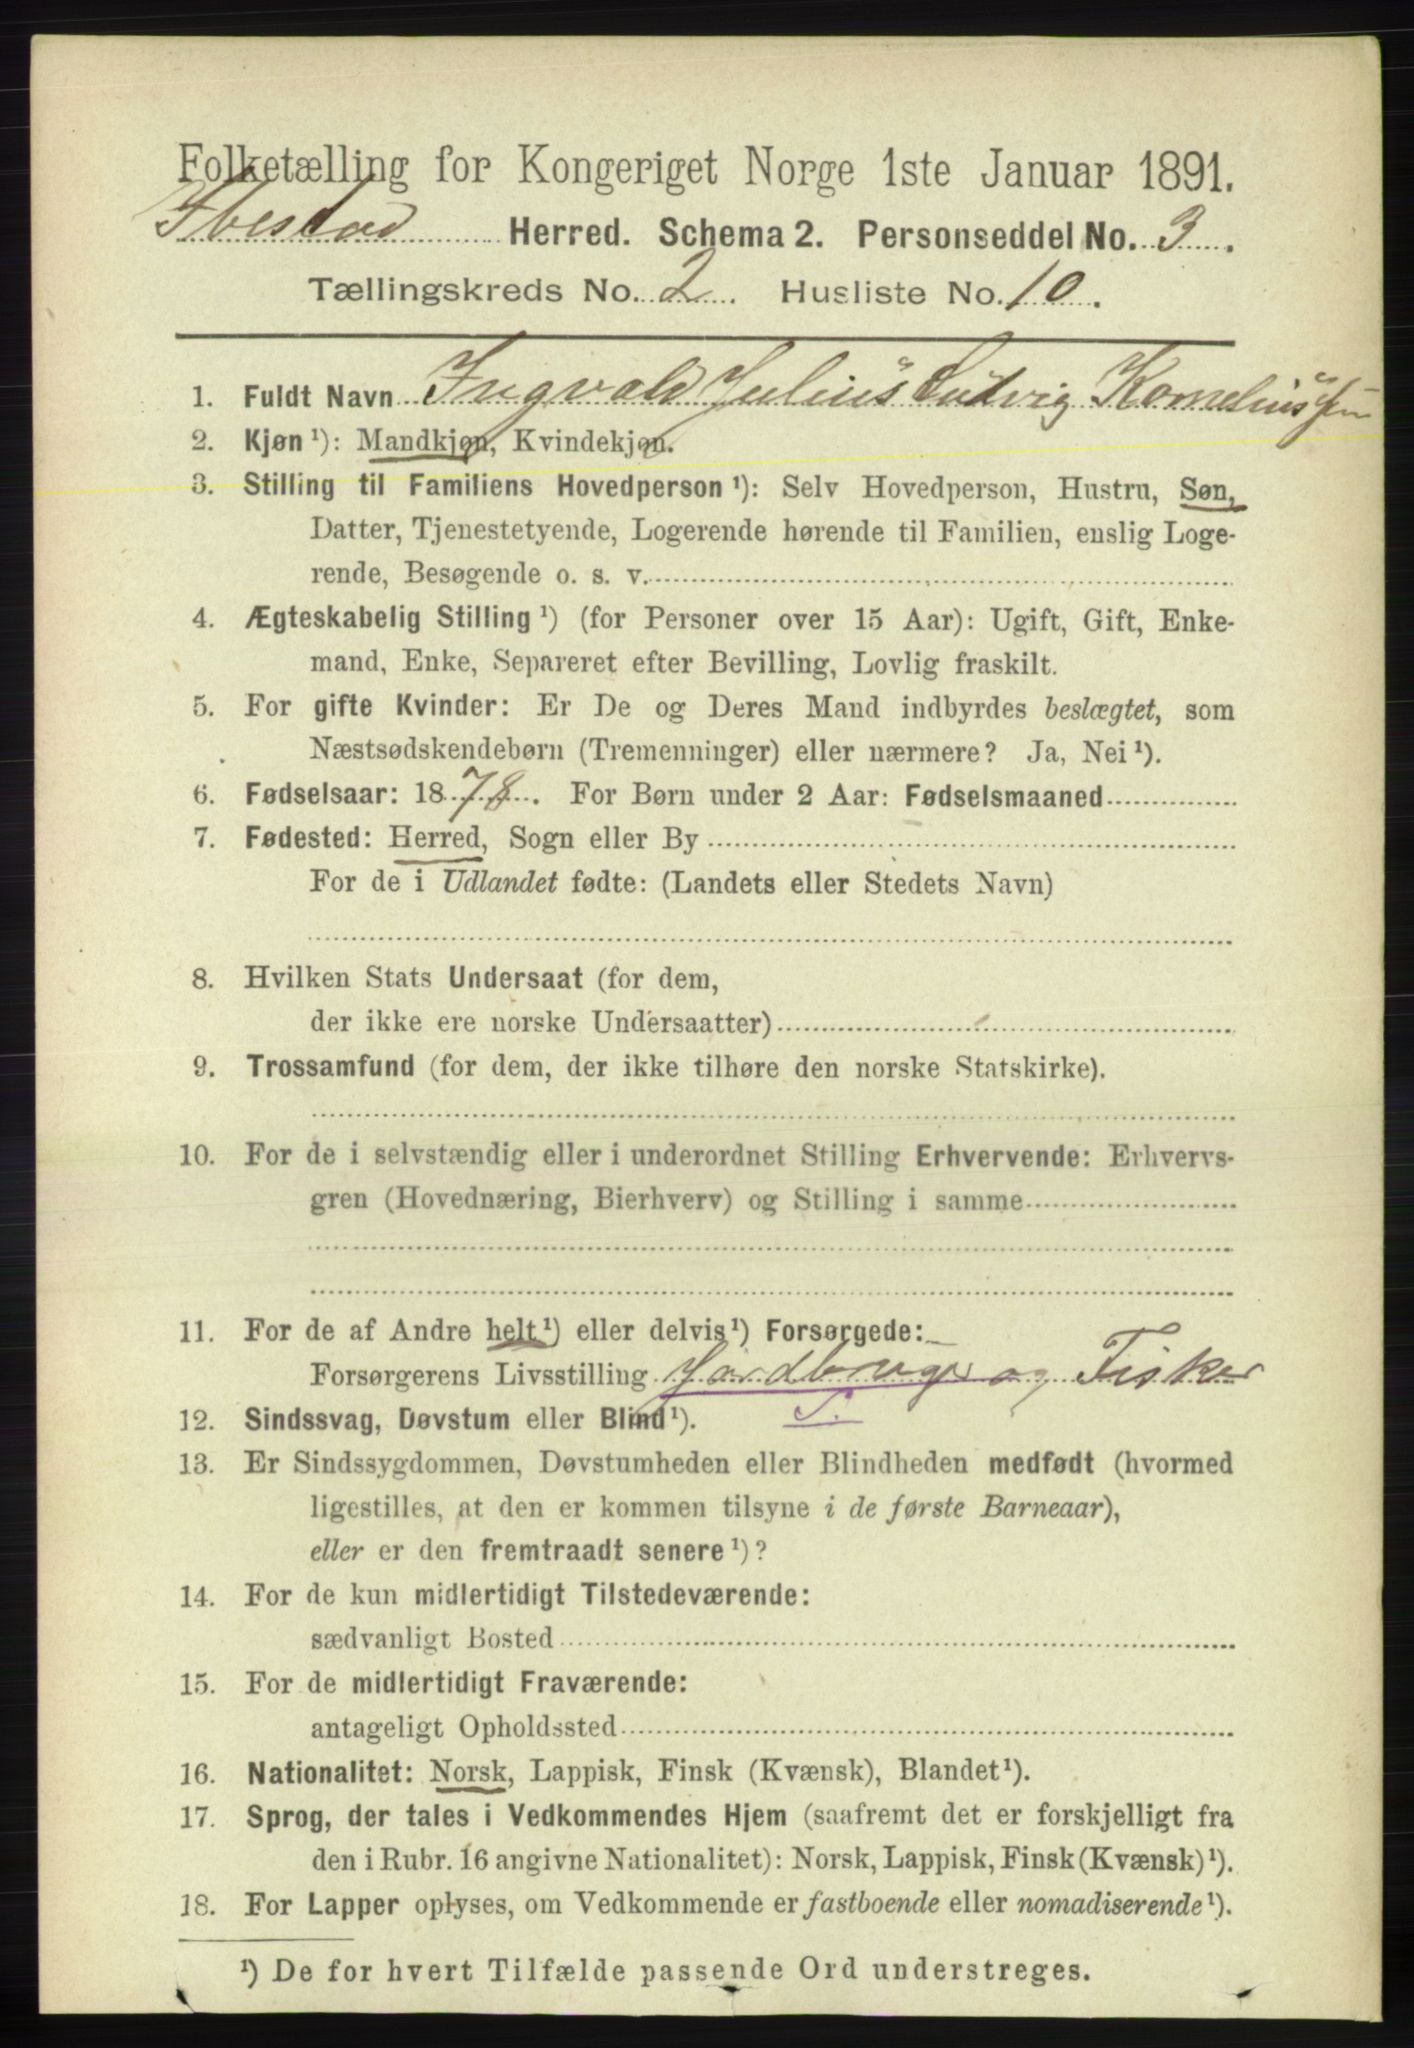 Folketælling for Kongeriget Norge 1ste Januar 1891.
Ibestad Herred. Schema 2. Personseddel No. 3.
Tællingskreds No. 2. Husliste No. 10.
1. Fuldt Navn Ingvald Julius Ludvig Korneliussen
2. Kjøn ¹): Mandkjøn, Kvindekjøn.
3. Stilling til Familiens Hovedperson ¹): Selv Hovedperson, Hustru, Søn,
Datter, Tjenestetyende, Logerende hørende til Familien, enslig Loge-
rende, Besøgende o. s. v.
4. Ægteskabelig Stilling ¹) (for Personer over 15 Aar): Ugift, Gift, Enke-
mand, Enke, Separeret efter Bevilling, Lovlig fraskilt.
5. For gifte Kvinder: Er De og Deres Mand indbyrdes beslægtet, som
Næstsødskendebørn (Tremenninger) eller nærmere? Ja, Nei ¹).
6. Fødselsaar: 1878. For Børn under 2 Aar: Fødselsmaaned
7. Fødested: Herred, Sogn eller By
For de i Udlandet fødte: (Landets eller Stedets Navn)
8. Hvilken Stats Undersaat (for dem,
der ikke ere norske Undersaatter)
9. Trossamfund (for dem, der ikke tilhøre den norske Statskirke).
10. For de i selvstændig eller i underordnet Stilling Erhvervende: Erhvervs-
gren (Hovednæring, Bierhverv) og Stilling i samme
11. For de af Andre helt ¹) eller delvis ¹) Forsørgede:
Forsørgerens Livsstilling Jordbruger og Fisker
12. Sindssvag, Døvstum eller Blind ¹). S.
13. Er Sindssygdommen, Døvstumheden eller Blindheden medfødt (hvormed
ligestilles, at den er kommen tilsyne i de første Barneaar),
eller er den fremtraadt senere ¹)?
14. For de kun midlertidigt Tilstedeværende:
sædvanligt Bosted
15. For de midlertidigt Fraværende:
antageligt Opholdssted
16. Nationalitet: Norsk, Lappisk, Finsk (Kvænsk), Blandet ¹).
17. Sprog, der tales i Vedkommendes Hjem (saafremt det er forskjelligt fra
den i Rubr. 16 angivne Nationalitet): Norsk, Lappisk, Finsk (Kvænsk) ¹).
18. For Lapper oplyses, om Vedkommende er fastboende eller nomadiserende ¹).
¹) De for hvert Tilfælde passende Ord understreges.